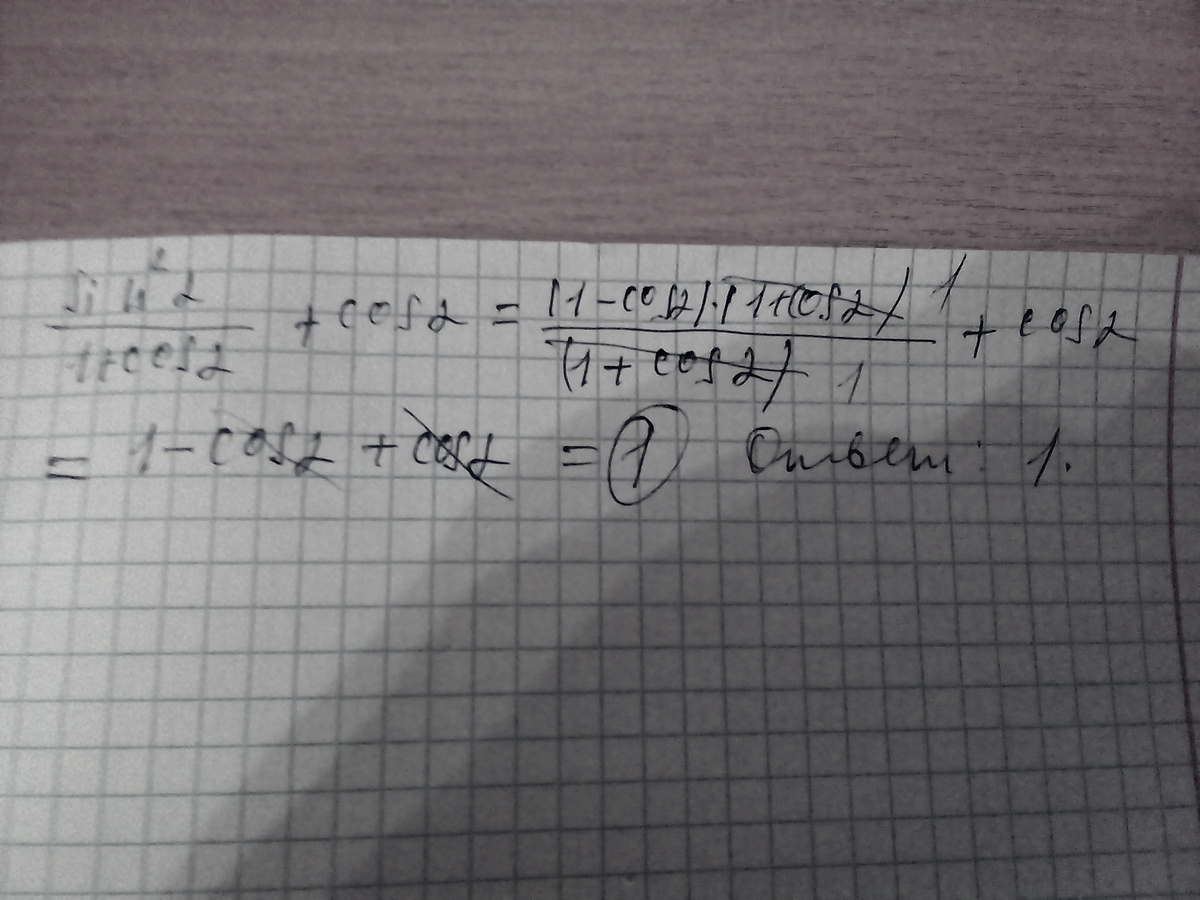 sin²α / 1+cosα + cosα = (1-cosα)·(1+cosα) 1 / (1+cosα) 1 + cosα
= 1 - cosα + cosα = 1 Ответ: 1.